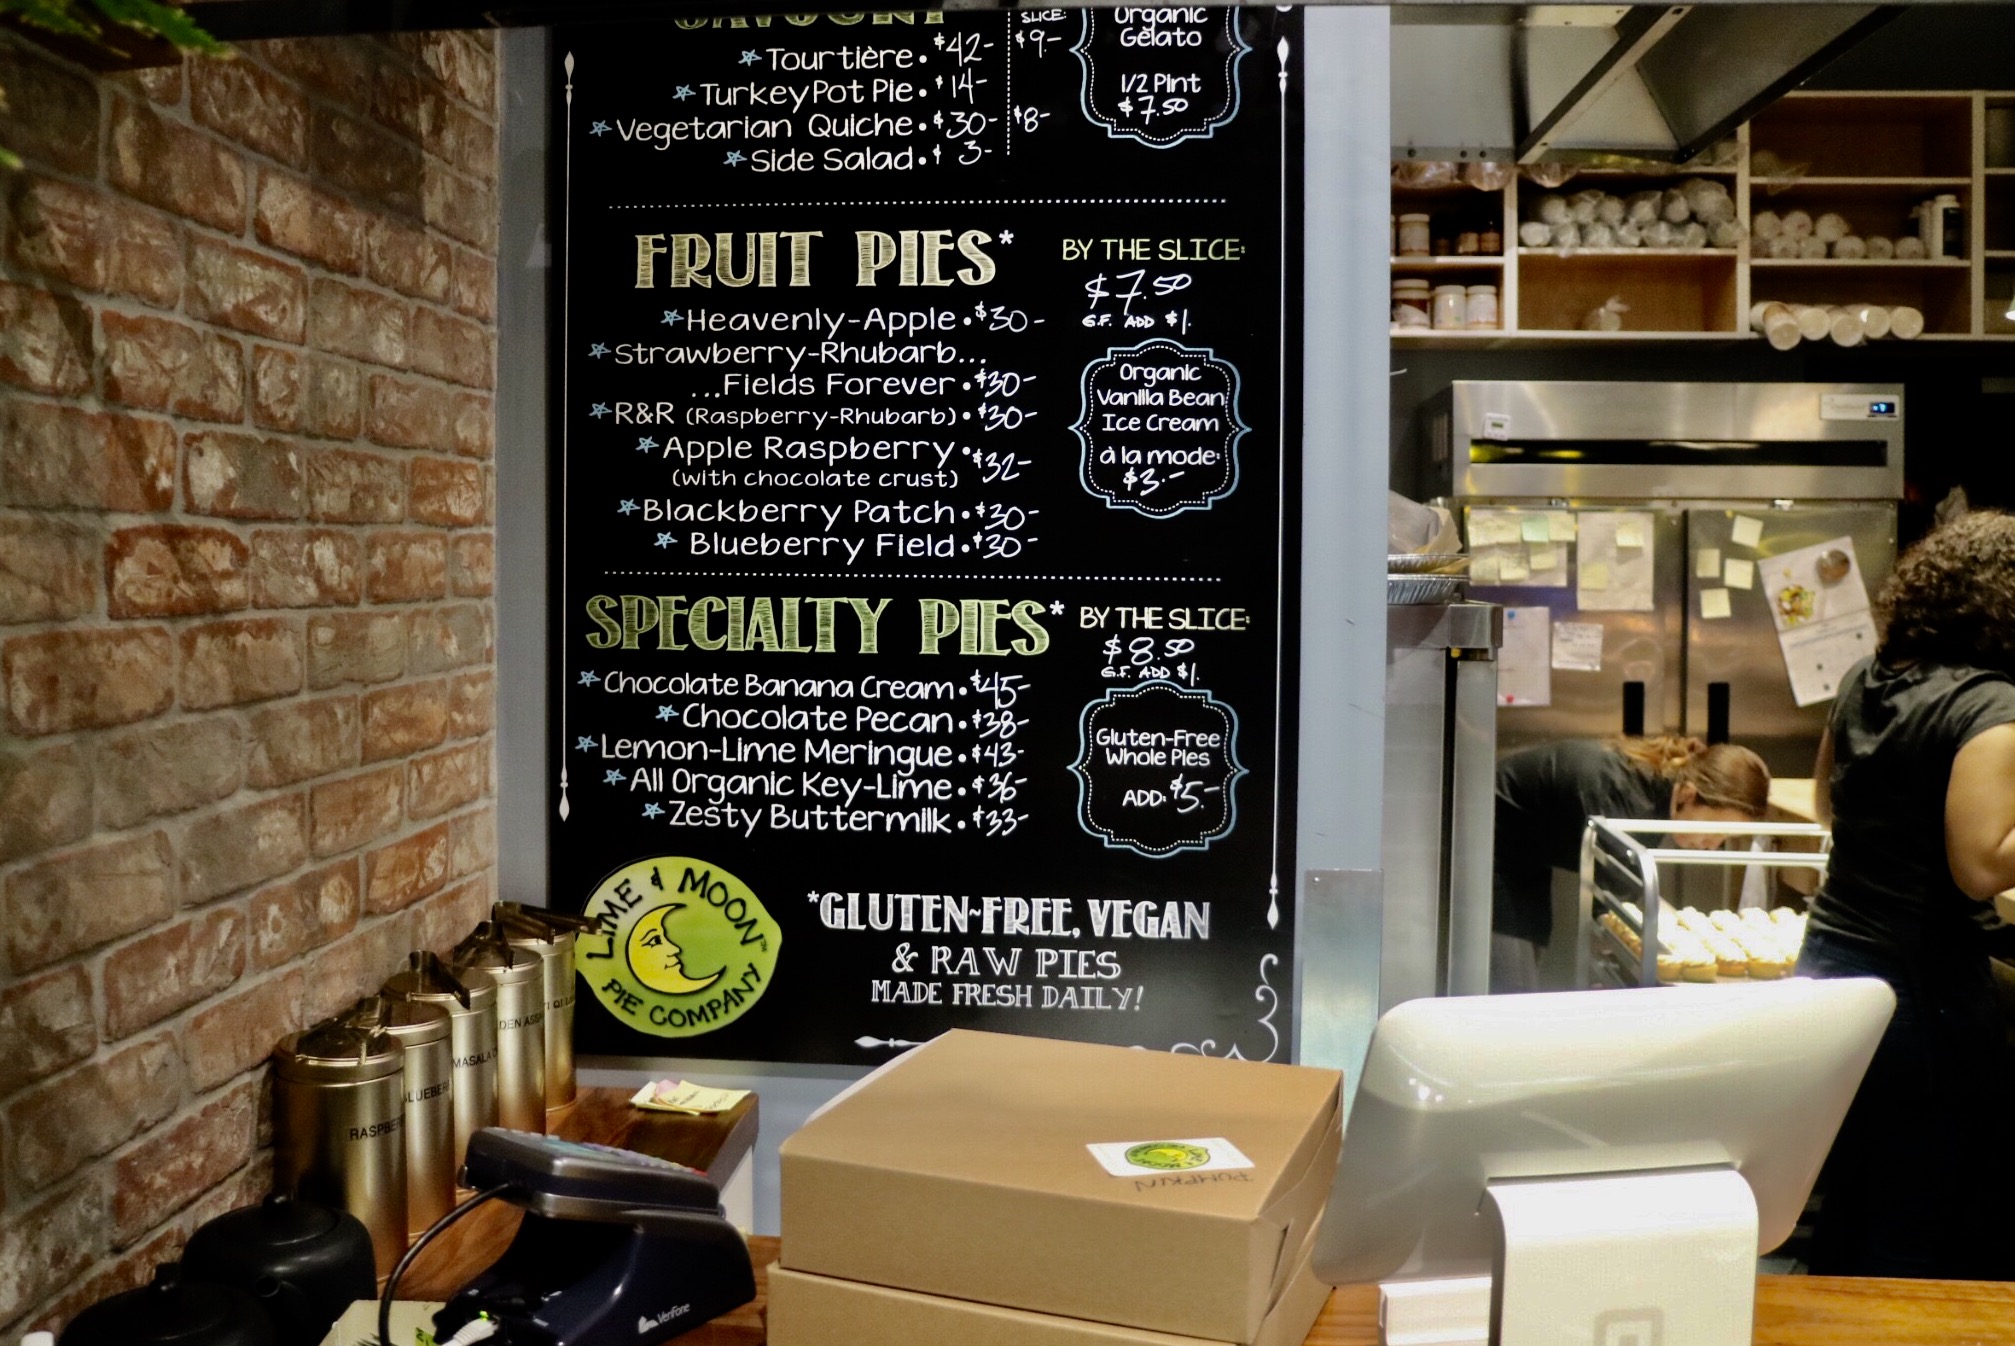 SAVOURY
SLICE:
Tourtière • $42- $9.-
Turkey Pot Pie • $14-
Vegetarian Quiche • $30- $8-
Side Salad • $3-
Organic
Gelato
1/2 Pint
$7.50
FRUIT PIES*
BY THE SLICE:
$7.50
G.F. ADD $1.
Heavenly-Apple • $30-
Strawberry-Rhubarb...
...Fields Forever • $30-
R&R (Raspberry-Rhubarb) • $30-
Apple Raspberry • $32-
(with chocolate crust)
Blackberry Patch • $30-
Blueberry Field • $30-
Organic
Vanilla Bean
Ice Cream
à la mode:
$3.-
SPECIALTY PIES*
BY THE SLICE:
$8.50
G.F. ADD $1.
Chocolate Banana Cream • $45-
Chocolate Pecan • $38-
Lemon-Lime Meringue • $43-
All Organic Key-Lime • $36-
Zesty Buttermilk • $33-
Gluten-Free
Whole Pies
ADD: $5.-
LIME & MOON™
PIE COMPANY
*GLUTEN-FREE, VEGAN
& RAW PIES
MADE FRESH DAILY!
MASALA
PUMPKIN
VeriFone